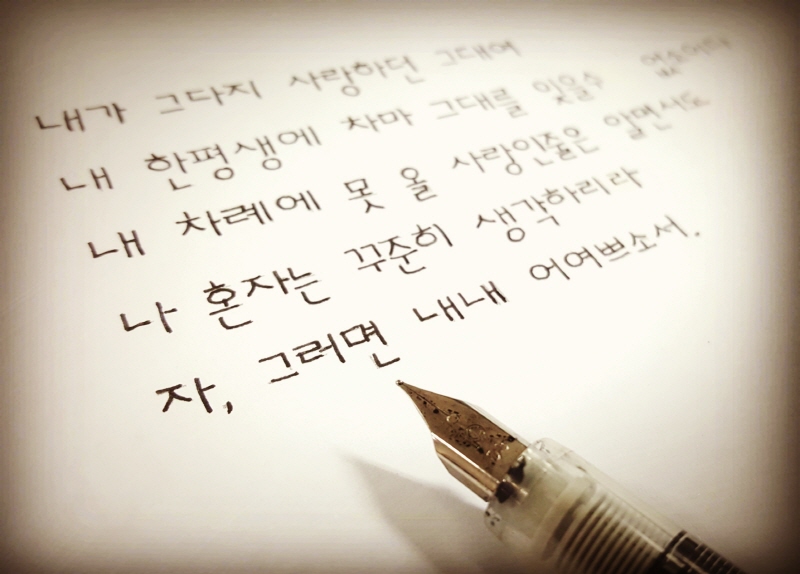 내가 그다지 사랑하던 그대여
내 한평생에 차마 그대를 잊을수 없소이다
내 차례에 못 올 사랑인줄은 알면서도
나 혼자는 꾸준히 생각하리라
자, 그러면 내내 어여쁘소서.